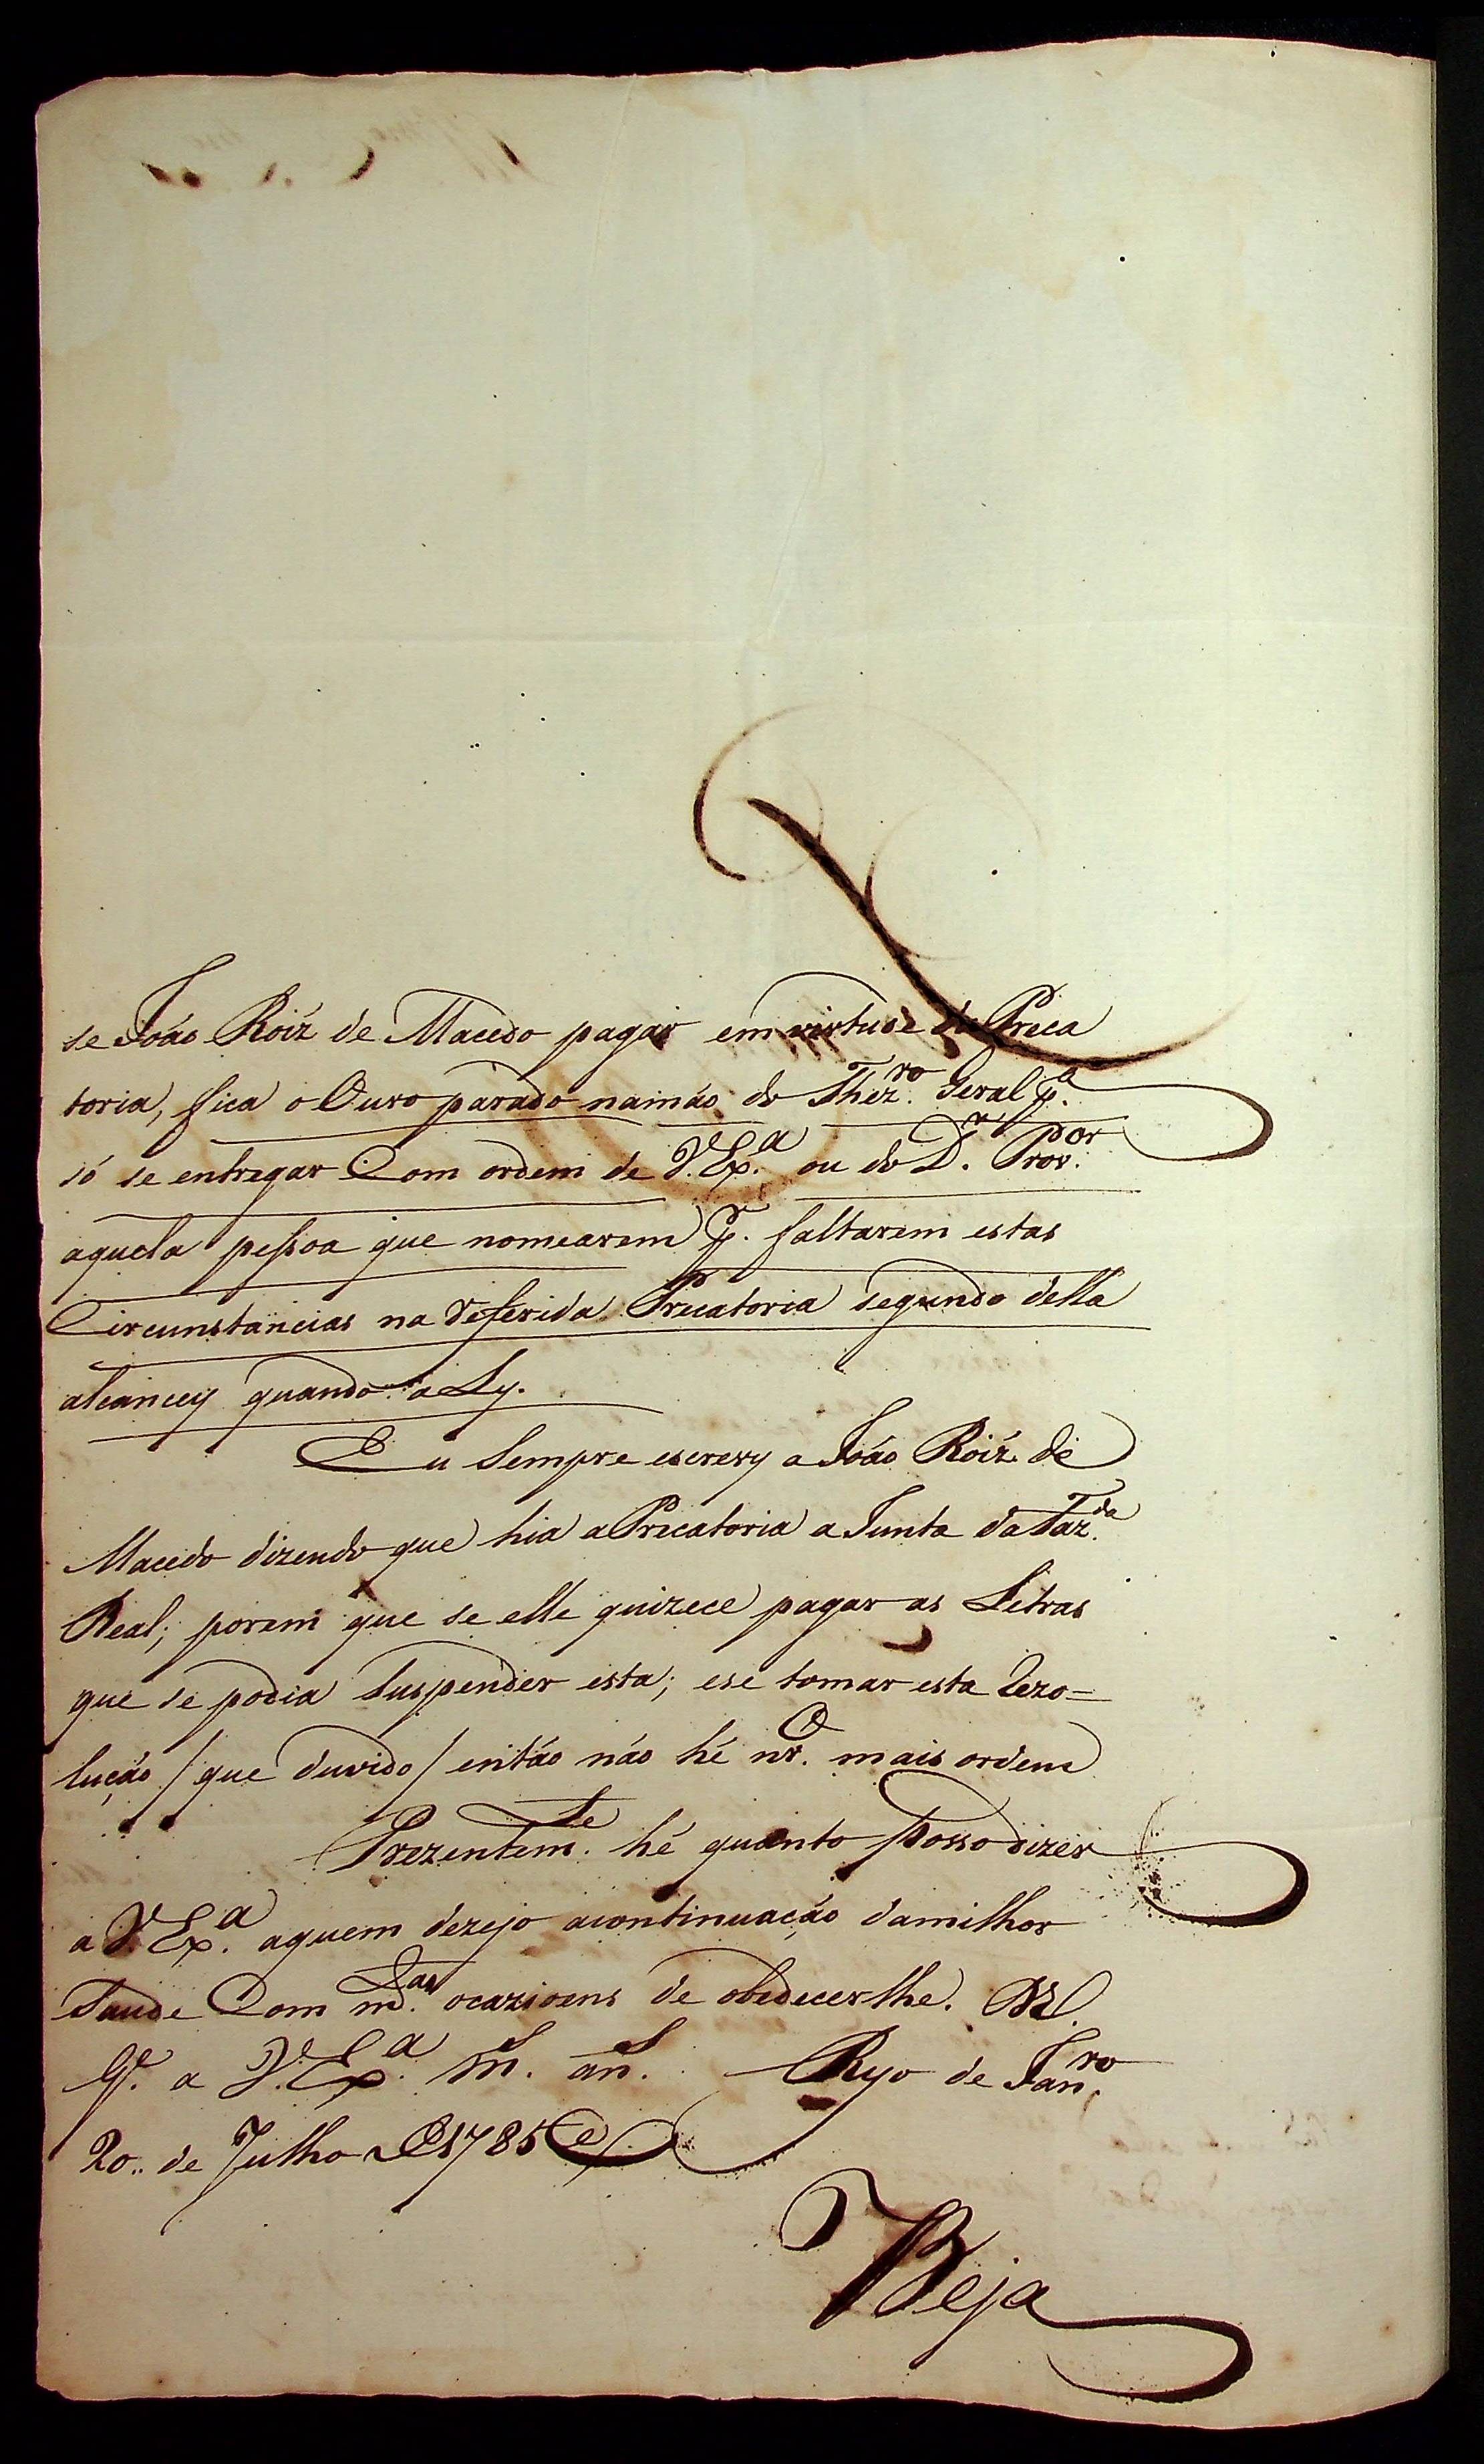 se João Roiz de Macedo pagar em virtude da Preca
toria, fica o Ouro parado namão do Thezro. Geral pa.
só se entregar Com ordem de V.Exa. ou do Dr. Provor.
aquela pessoa que nomearem p. faltarem estas
Circunstancias na referida Precatoria segundo della
alcancey quando a Ly.
Eu Sempre escrevy a João Roiz de
Macedo dizendo que hia a Precatoria a Junta da Fazda.
Real; porem que se elle quizece pagar as Letras
que se podia Suspender esta; ese tomar esta Rezo=
lução / que duvido / então não hé mais ordem
Prezentemte. hé quanto posso dizer
a V.Exa. aquem dezejo acontinuação damilhor
Saude Com mdas. ocazioens de obedecerlhe.
G. a V.Exa. ms. ans. Ryo de Janro.
20.. de Julho de 1785
Beja